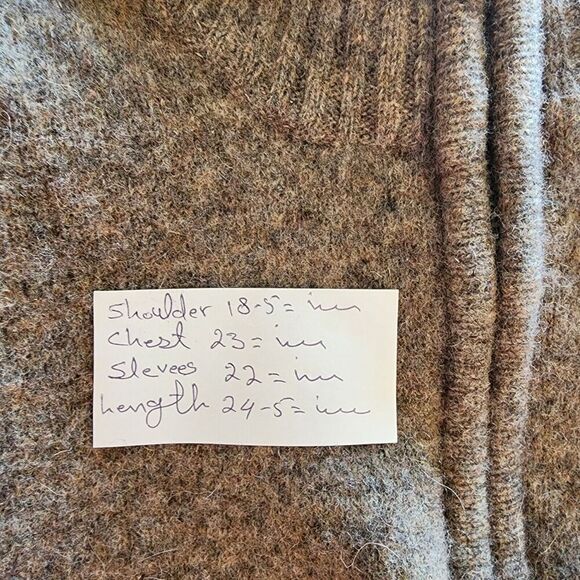 Shoulder 18-5 = inn
Chest 23 = inn
Slevees 22 = inn
Length 24-5 = inn